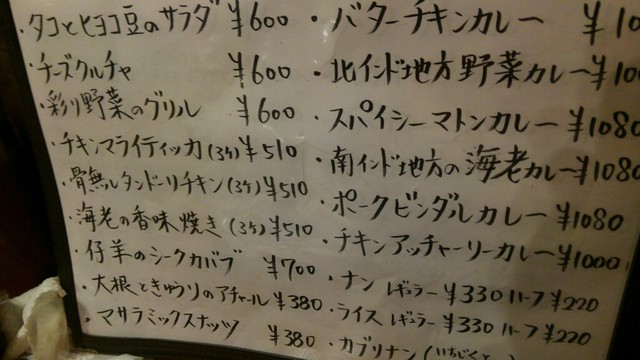 ・タコとヒヨコ豆のサラダ ¥600
・チーズクルチャ ¥600
・彩り野菜のグリル ¥600
・チキンマライティッカ(3ケ) ¥510
・骨無しタンドーリチキン(3ケ) ¥510
・海老の香味焼き(3ケ) ¥510
・仔羊のシークカバブ ¥700
・大根ときゅうりのアチャール ¥380
・マサラミックスナッツ ¥380
・バターチキンカレー ¥10
・北インド地方野菜カレー ¥100
・スパイシーマトンカレー ¥1080
・南インド地方の海老カレー ¥1080
・ポークビンダルカレー ¥1080
・チキンアッチャーリーカレー ¥1000
・ナン レギュラー ¥330 ハーフ ¥220
・ライス レギュラー ¥330 ハーフ ¥220
・カブリナン(いちじくと